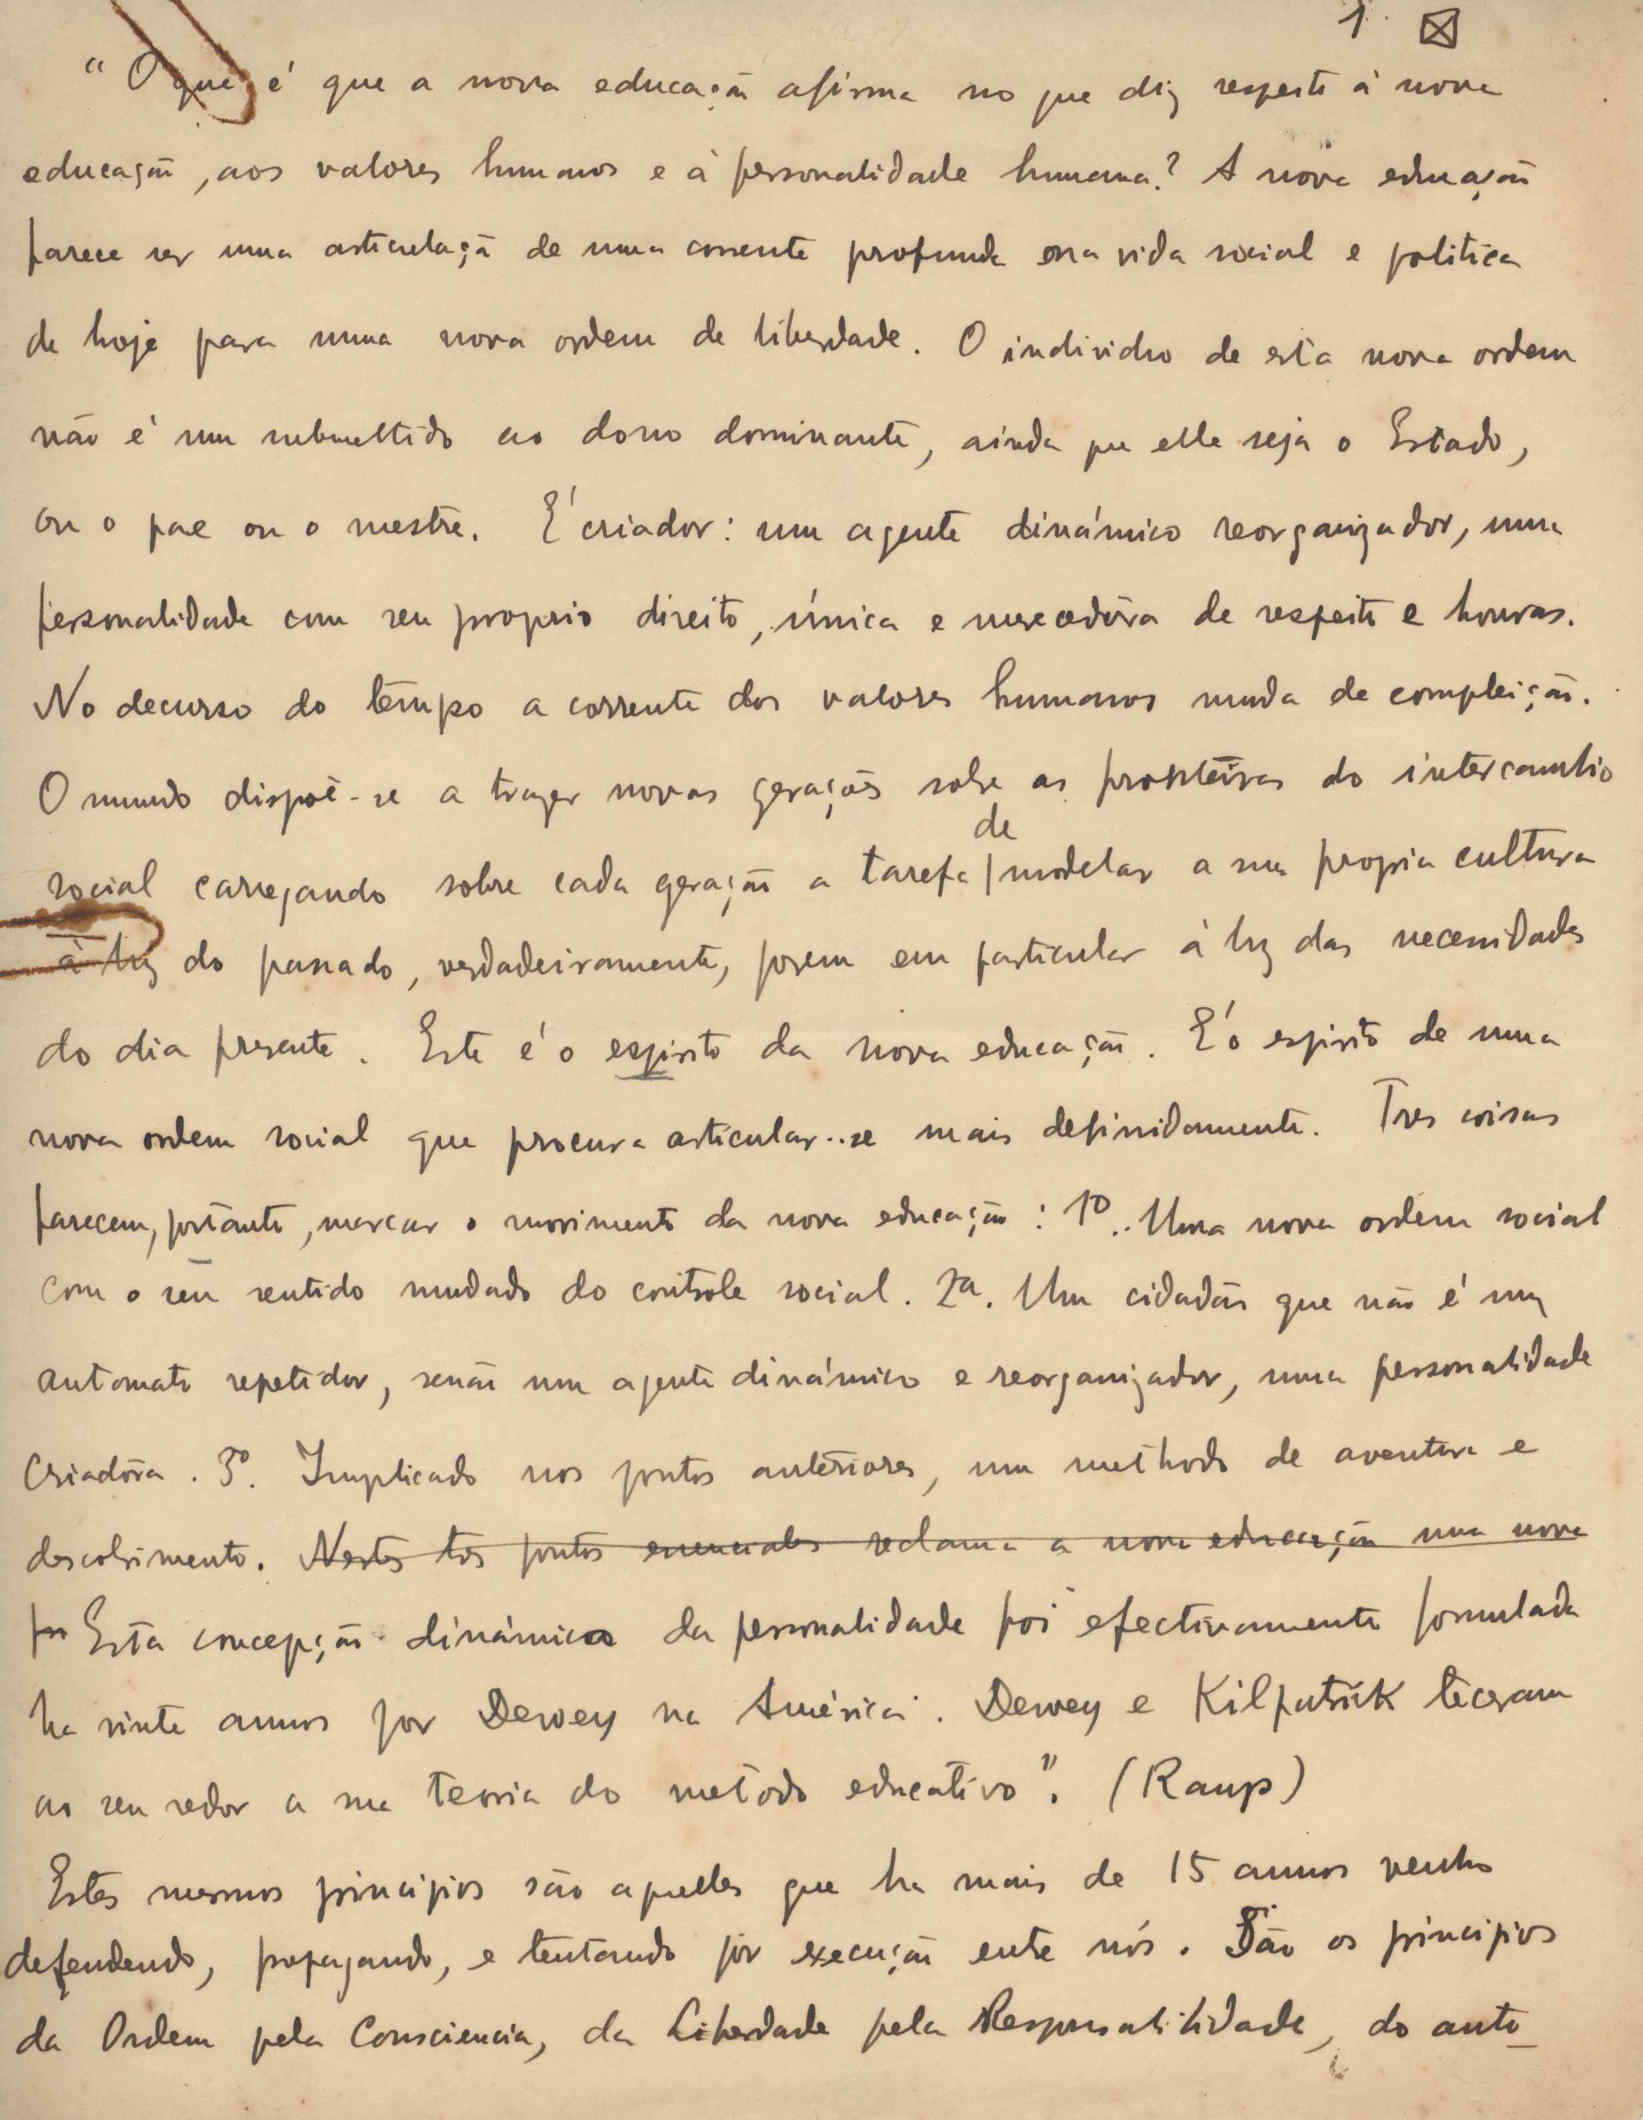 1.
"O que é que a nova educação afirma no que diz respeito á nova
educação, aos valores humanos e á personalidade humana? A nova educação
parece ser uma articulaçã de uma corrente profunda na vida social e politica
de hoje para uma nova ordem de liberdade. O individuo de esta nova ordem
não é um submettido ao dono dominante, ainda que elle seja o Estado,
ou o pae ou o mestre. E' criador: um agente dinámico reorganizador, uma
personalidade com seu proprio direito, única e merecedôra de respeito e honras.
No decurso do tempo a corrente dos valores humanos muda de compleição.
O mundo dispoê-se a trazer novas gerações sobre as fronteiras do intercambio
social carregando sobre cada geração a tarefa de modelar a sua propria cultura
á luz do passado, verdadeiramente, porem em particular á luz das necessidades
do dia presente. Este é o espirito da nova educação. E' o espirito de uma
nova ordem social que procura articular-se mais definidamente. Tres coisas
parecem, portanto, marcar o movimento da nova educação: 1º. Uma nova ordem social
com o seu sentido mudado do controle social. 2ª. Um cidadão que não é um
automato repetidor, senão um agente dinámico e reorganizador, uma personalidade
criadôra. 3º. Implicado nos pontos anteriores, um methodo de aventura e
descobrimento. Nestes tres pontos essenciales reclama a nova educação uma nova
Esta concepção dinámica da personalidade foi efectivamente formulada
ha vinte annos por Dewey na América. Dewey e Kilpatrick teceram
ao seu redor a sua teoria do metodo educativo". (Raup)
Estes mesmos principios são aquelles que ha mais de 15 annos venho
defendendo, propagando, e tentando pôr execução entre nós. São os principios
da Ordem pela Consciencia, da Liberdade pela Responsabilidade, do auto-